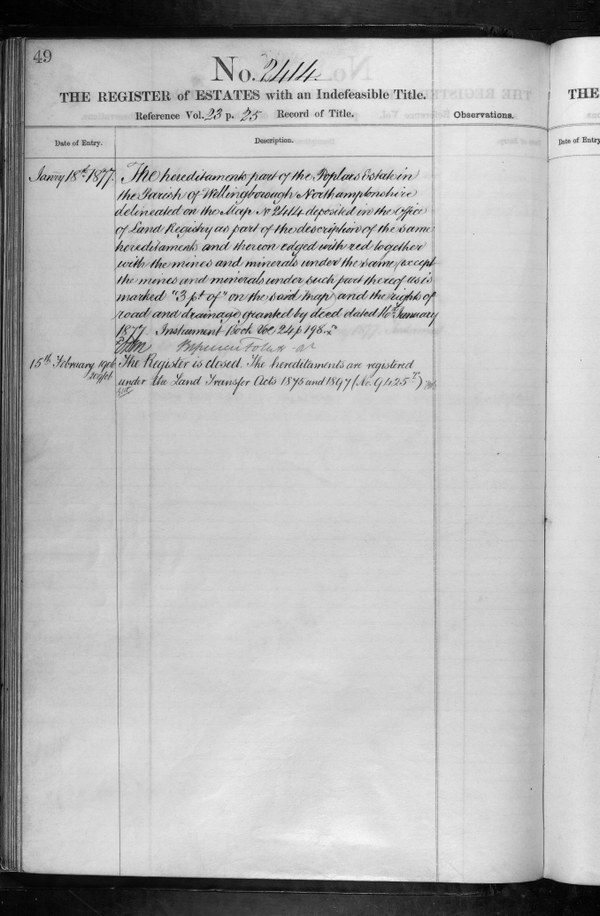 49
No. 2414
THE REGISTER of ESTATES with an Indefeasible Title.
Reference Vol. 23 p. 25 Record of Title.
Observations.
Date of Entry.
Description.
Janry 18th 1877.
The hereditaments part of the Poplars Estate in
the Parish of Wellingborough Northamptonshire
delineated on the Map No 2414 deposited in the Office
of Land Registry as part of the description of the same
hereditaments and thereon edged with red together
with the mines and minerals under the same, except
the mines and minerals under such part thereof as is
marked "3 pt of" on the said Map, and the rights of
road and drainage granted by deed dated 16th January
1877. Instrument Book Vol 24 p 198.
15th February 1906
The Register is closed. The hereditaments are registered
under the Land Transfer Acts 1875 and 1897 (No. 9425)
THE
Date of Entry